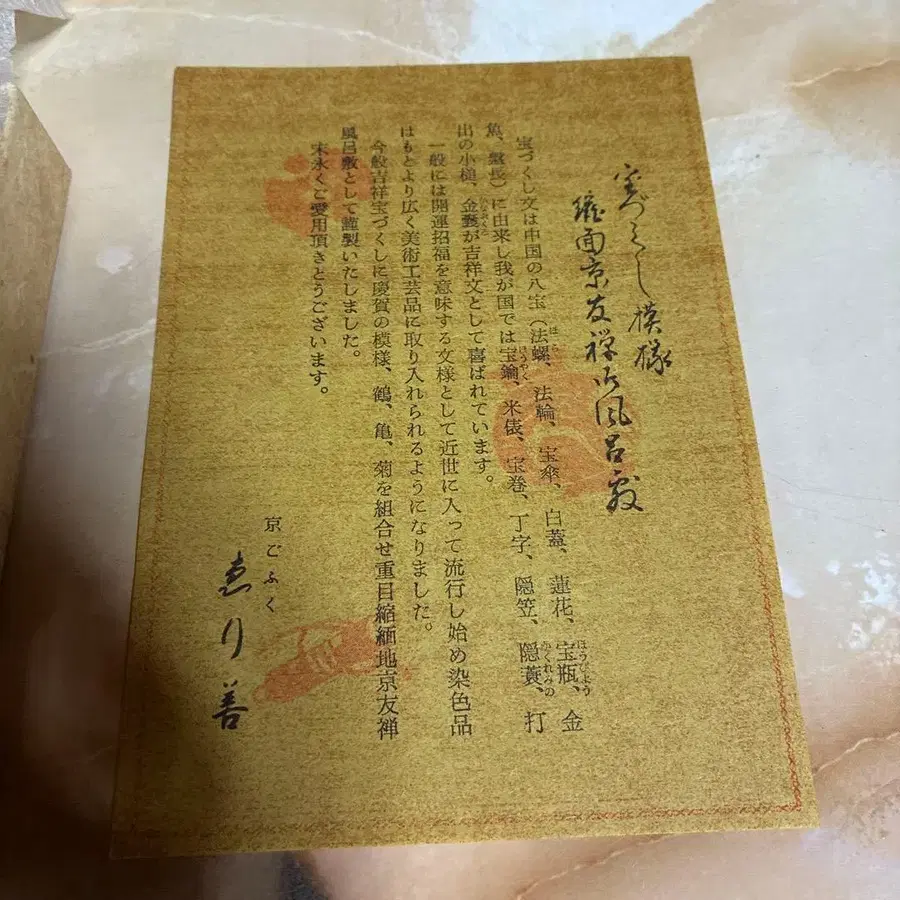 宝づくし模様
縮面京友禅御風呂敷
宝づくし文は中国の八宝(法螺、法輪、宝傘、白蓋、蓮花、宝瓶、金
魚、盤長)に由来し我が国では宝鑰、米俵、宝巻、丁字、隠笠、隠蓑、打
出の小槌、金嚢が吉祥文として喜ばれています。
一般には開運招福を意味する文様として近世に入って流行し始め染色品
はもとより広く美術工芸品に取り入れられるようになりました。
今般吉祥宝づくしに慶賀の模様、鶴、亀、菊を組合せ重目縮緬地京友禅
風呂敷として謹製いたしました。
末永くご愛用頂きとうございます。
京ごふく
ゑり善